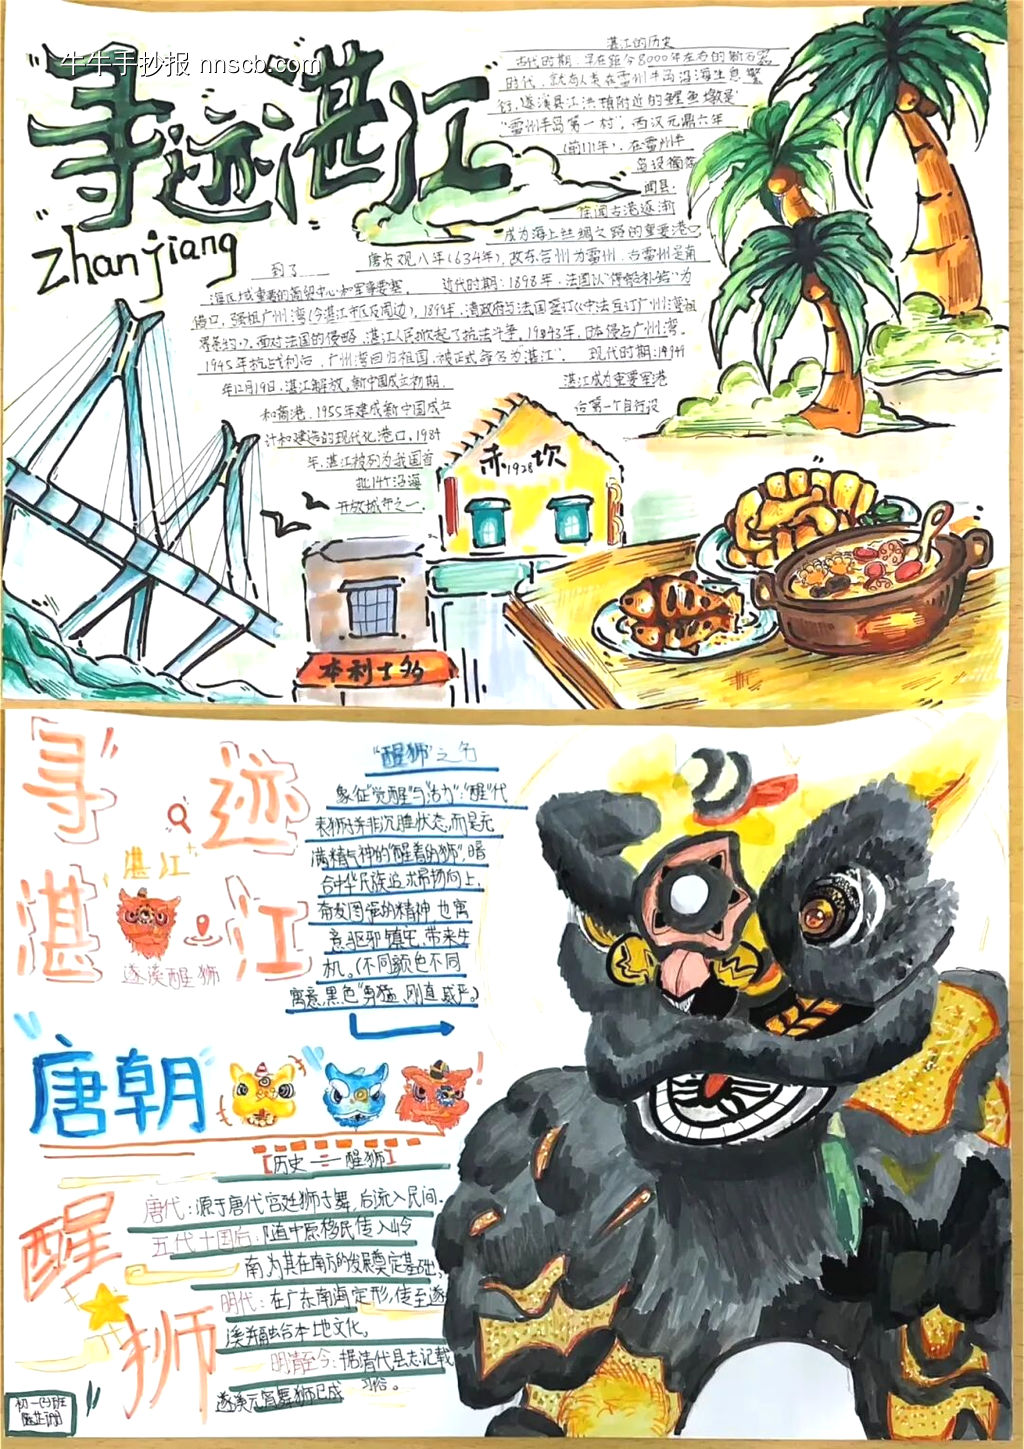 牛牛手抄报 nnscb.com
"寻迹湛江"
zhanjiang
湛江的历史
古代时期:早在距今8000年左右的新石器
时代,就有人类在雷州半岛沿海生息繁
衍,遂溪县江洪镇附近的鲤鱼墩是
"雷州半岛第一村",西汉元鼎六年
(前111年),在雷州半
岛设徐
闻县.
徐闻古港逐渐
成为海上丝绸之路的重要港口
唐贞观八年(634年),改东合州为雷州,古雷州是南
到了……
海区域重要的商贸中心和军事要塞. 近代时期:1898年,法国以"停船补给"为
借口,强租广州湾(今湛江市区及周边),1899年,清政府与法国签订《中法互订广州湾租
界条约》,面对法国的侵略,湛江人民掀起了抗法斗争,1943年,日本侵占广州湾.
1945年抗战利后,广州湾回归祖国,被正式命名为"湛江". 现代时期:1949
年12月19日,湛江解放,新中国成立初期,
湛江成为重要军港
和商港,1955年建成新中国成立
后第一个自行设
计和建造的现代化港口,1984
年,湛江被列为我国首
批14个沿海
开放城市之一.
赤1928坎
本利士多
"寻迹
湛江"
湛江
遂溪醒狮
"醒狮"之名
象征"觉醒"与"活力","醒"代
表狮并非沉睡状态,而是充
满精气神的"醒着的狮",暗
合中华民族追求昂扬向上,
奋发图强的精神,也寓
意驱邪镇宅,带来生
机。(不同颜色不同
寓意,黑色"勇猛,刚直威严。)
"唐朝"
[历史——醒狮]
醒狮
唐代:源于唐代宫廷狮子舞,后流入民间.
五代十国后:随中原移民传入岭
南,为其在南方的发展奠定基础,
明代:在广东南海定形,传至遂
溪并融合本地文化。
明清至今:据清代县志记载
遂溪元宵舞狮已成习俗。
初一(3)班